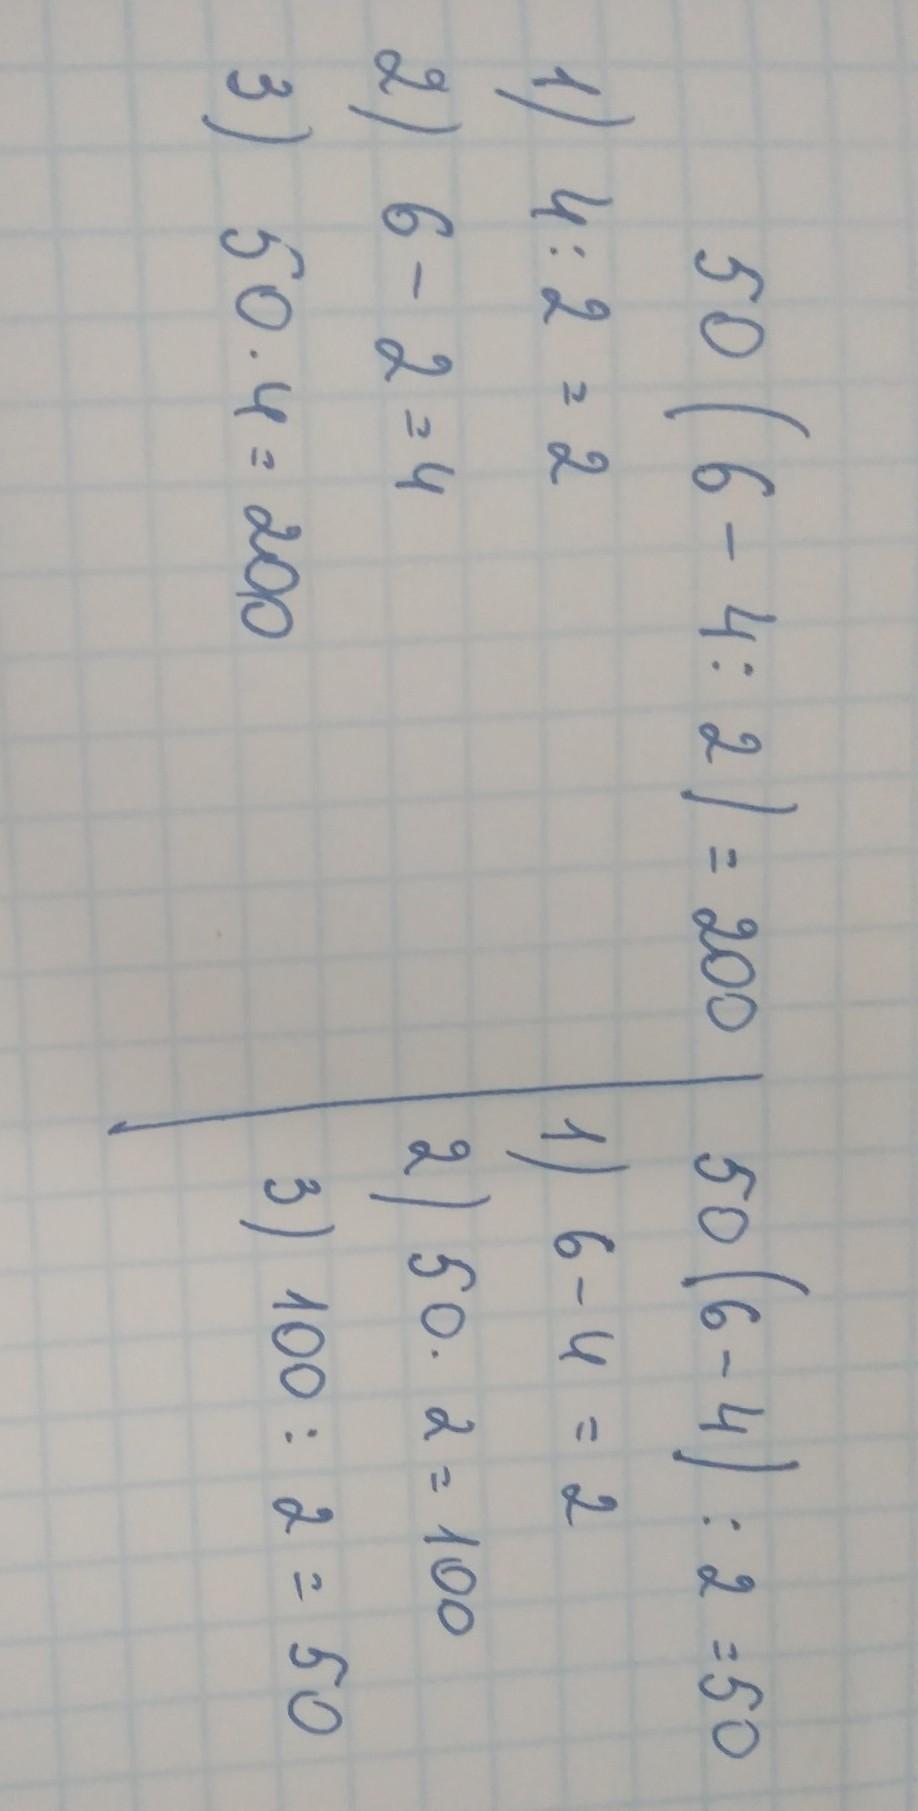 50 (6 - 4 : 2) = 200
1) 4 : 2 = 2
2) 6 - 2 = 4
3) 50 . 4 = 200
50 (6 - 4) : 2 = 50
1) 6 - 4 = 2
2) 50 . 2 = 100
3) 100 : 2 = 50